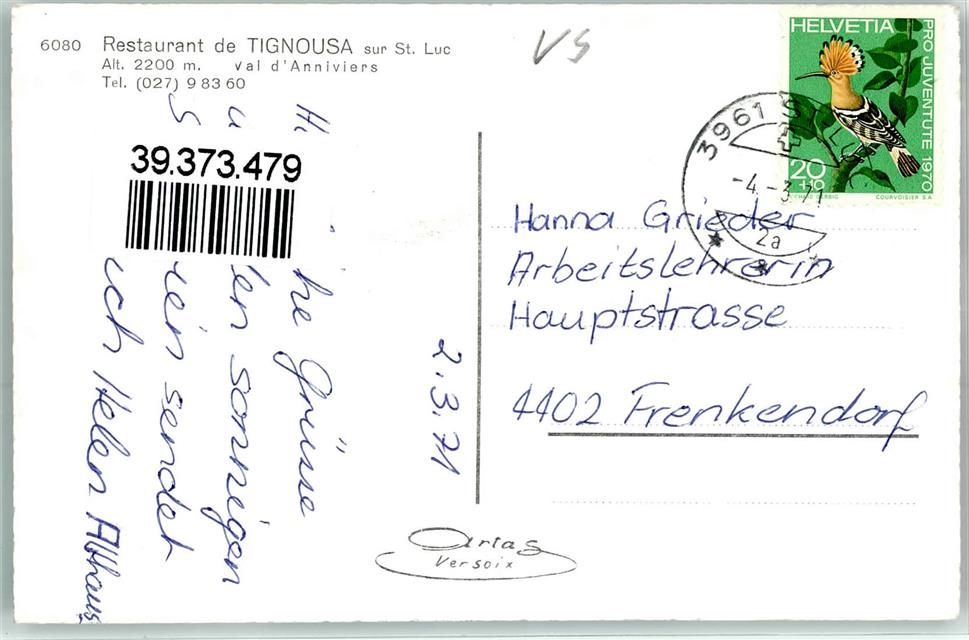 6080 Restaurant de TIGNOUSA sur St. Luc
Alt. 2200 m. Val d'Anniviers
Tel. (027) 9 83 60
VS
HELVETIA
PRO JUVENTUTE 1970
20
+10
COURVOISIER S.A.
3961 S
-4.-3.71
2a
39.373.479
he Grüsse
den sonnigen
sendet
ich Helen Althaus
2.3.71
Hanna Grieder
Arbeitslehrerin
Hauptstrasse
4402 Frenkendorf
Artas
Versoix